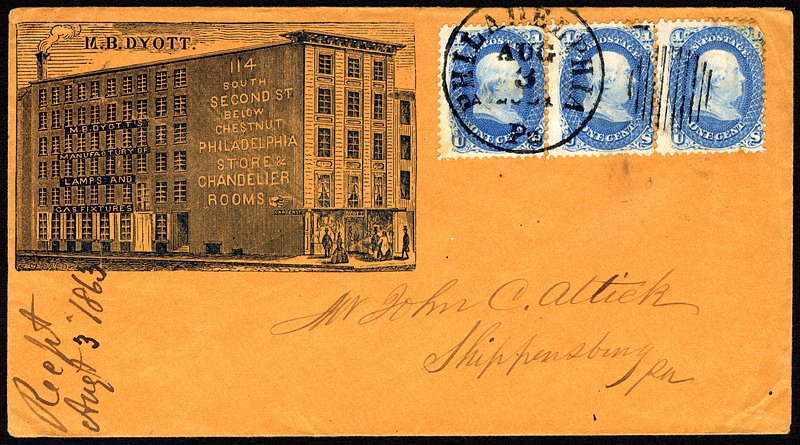 M.B.DYOTT.
114
SOUTH
SECOND ST
BELOW
CHESTNUT
PHILADELPHIA
STORE &
CHANDELIER
ROOMS
M.B.DYOTT'S
MANUFACTORY OF
LAMPS AND
GAS FIXTURES
PHILADELPHIA
AUG
3
Pa
U.S. POSTAGE
ONE CENT
U S
U.S. POSTAGE
ONE CENT
U S
U.S. POSTAGE
ONE CENT
U S
Mr John C. Attick
Shippensburg
Pa
Recpt
Augt 3 1863